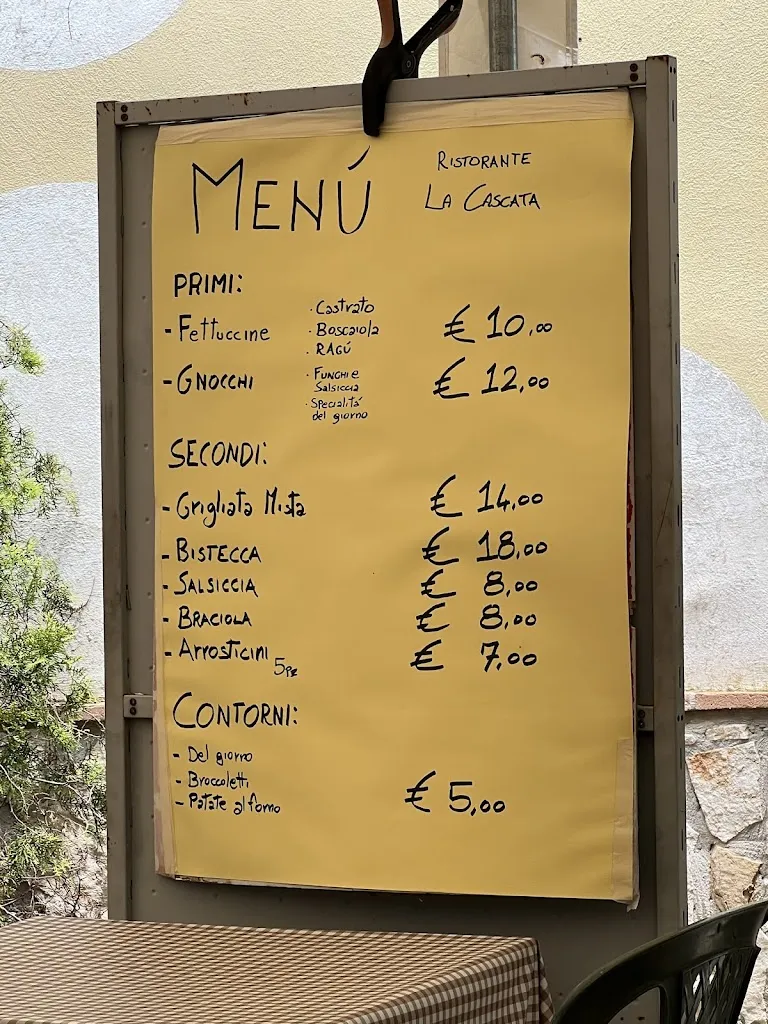 MENÚ
RISTORANTE
LA CASCATA
PRIMI:
- Fettuccine · Castrato € 10,00
· Boscaiola
· RAGÚ
- GNOCCHI · FUNGHI e € 12,00
Salsiccia
· Specialitá
del giorno
SECONDI:
- Grigliata Mista € 14,00
- BISTECCA € 18,00
- SALSICCIA € 8,00
- BRACIOLA € 8,00
- Arrosticini 5Pz € 7,00
CONTORNI:
- Del giorno
- Broccoletti € 5,00
- Patate al forno